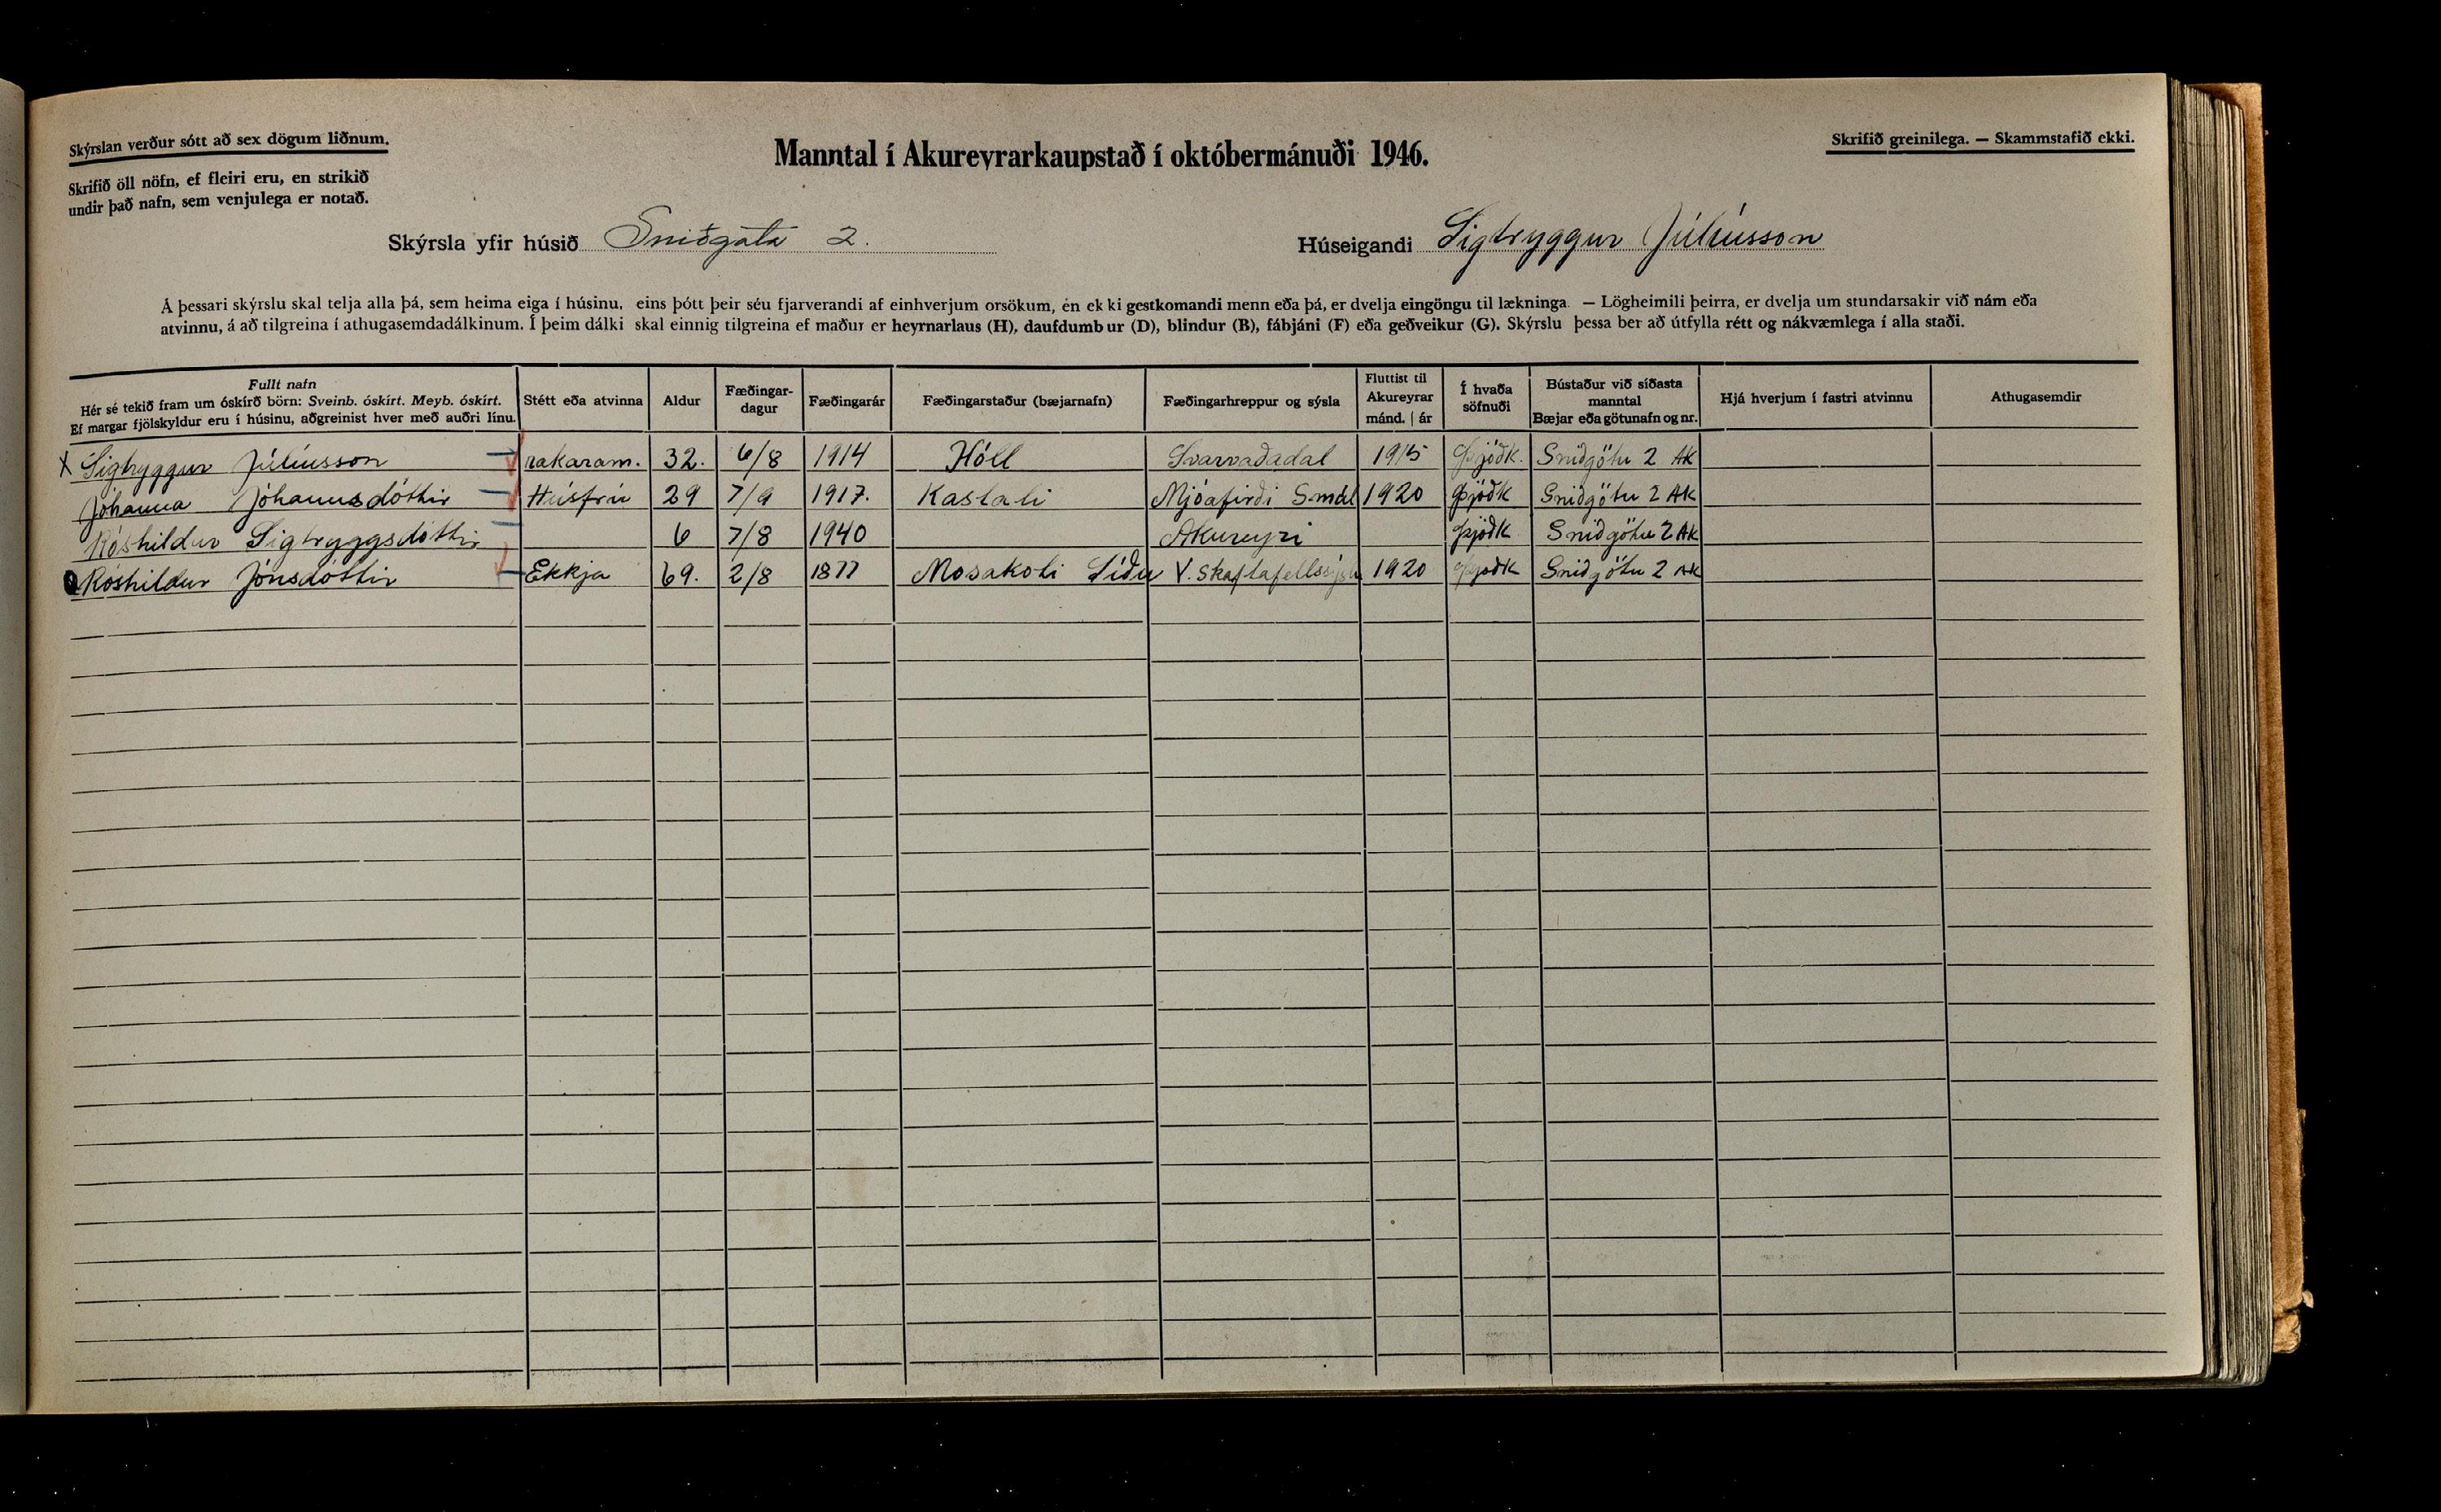 Skýrslan verður sótt að sex dögum liðnum.
Skrifið öll nöfn, ef fleiri eru, en strikið
undir það nafn, sem venjulega er notað.
Manntal í Akureyrarkaupstað í októbermánuði 1946.
Skrifið greinilega. — Skammstafið ekki.
Skýrsla yfir húsið Sniðgata 2.
Húseigandi Sigtryggur Júlíusson
Á þessari skýrslu skal telja alla þá, sem heima eiga í húsinu, eins þótt þeir séu fjarverandi af einhverjum orsökum, en ekki gestkomandi menn eða þá, er dvelja eingöngu til lækninga. — Lögheimili þeirra, er dvelja um stundarsakir við nám eða
atvinnu, á að tilgreina í athugasemdadálkinum. Í þeim dálki skal einnig tilgreina ef maður er heyrnarlaus (H), daufdumbur (D), blindur (B), fábjáni (F) eða geðveikur (G). Skýrslu þessa ber að útfylla rétt og nákvæmlega í alla staði.
Fullt nafn
Hér sé tekið fram um óskírð börn: Sveinb. óskírt. Meyb. óskírt.
Ef margar fjölskyldur eru í húsinu, aðgreinist hver með auðri línu.
Stétt eða atvinna
Aldur
Fæðingar-
dagur
Fæðingarár
Fæðingarstaður (bæjarnafn)
Fæðingarhreppur og sýsla
Fluttist til
Akureyrar
mánd. | ár
Í hvaða
söfnuði
Bústaður við síðasta
manntal
Bæjar eða götunafn og nr.
Hjá hverjum í fastri atvinnu
Athugasemdir
X Sigtryggur Júlíusson rakaram. 32. 6/8 1914 Hóll Svarvaðadal 1915 Þjóðk. Sniðgötu 2 AK
Jóhanna Jóhannsdóttir Húsfrú 29 7/9 1917. Kastali Mjóafirði Smúl 1920 Þjóðk Sniðgötu 2 AK
Róshildur Sigtryggsdóttir 6 7/8 1940 Akureyri Þjóðk Sniðgötu 2 AK
Róshildur Jónsdóttir Ekkja 69. 2/8 1877 Mosakoti Síðu V. Skaftafellssýslu 1920 Þjóðk Sniðgötu 2 AK